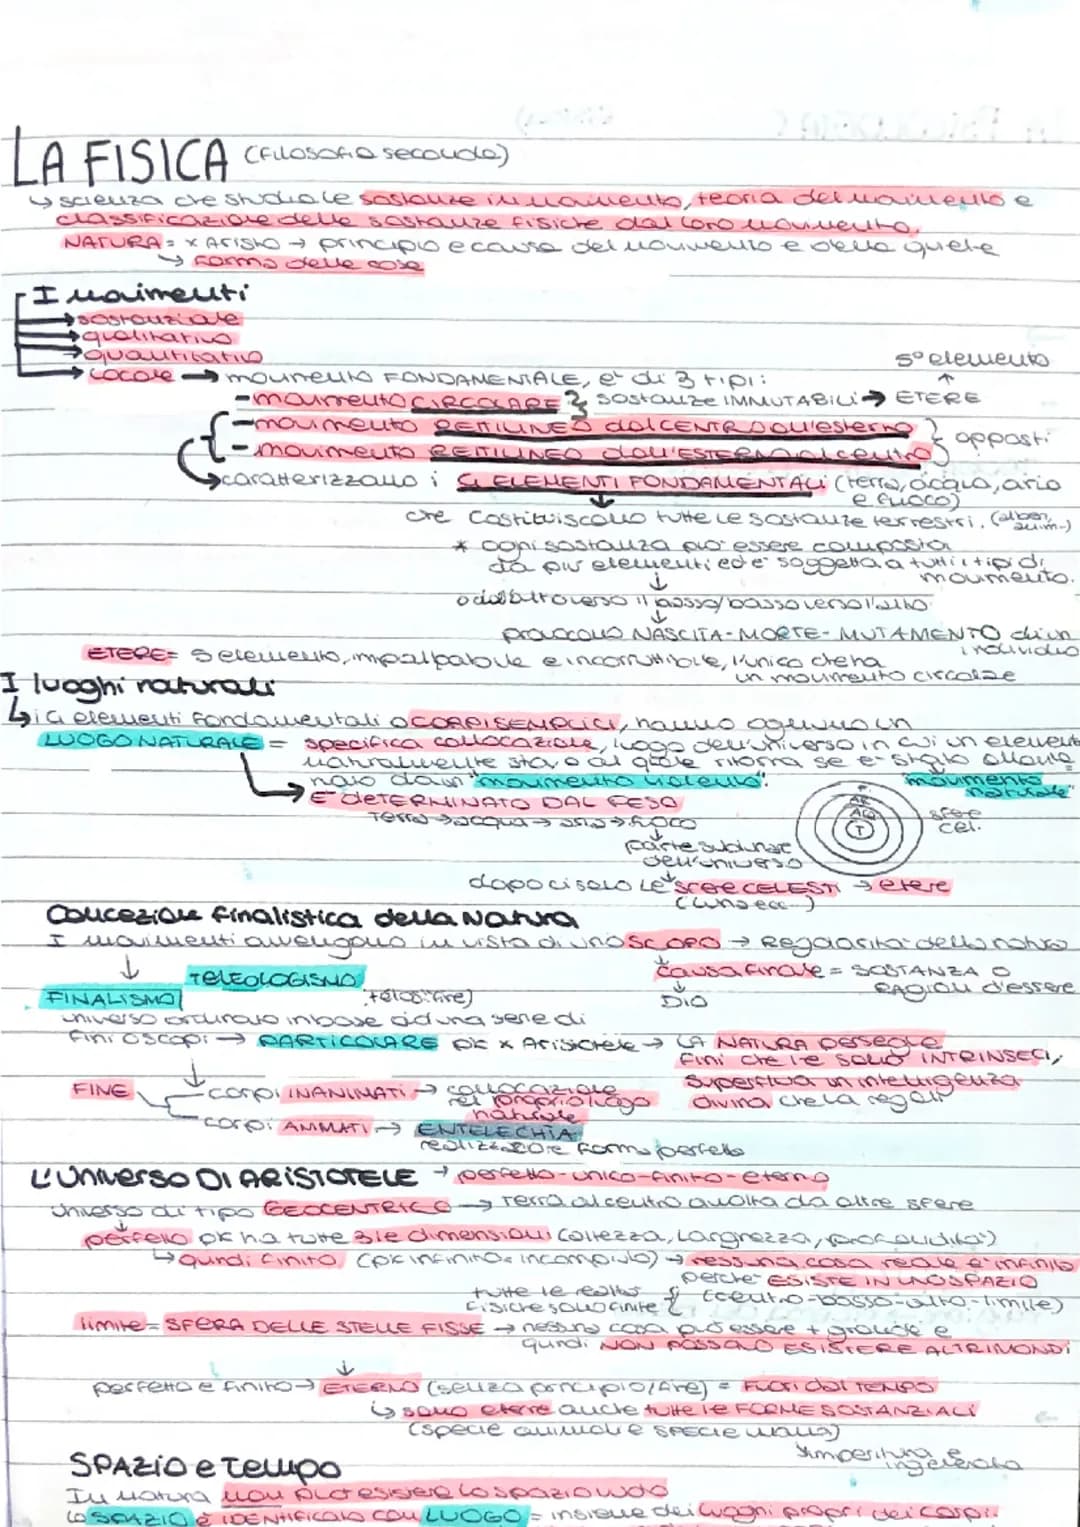 LA FISICA (filosofia seconda)
↳ scienza che studia le sostanze in movimento, teoria del movimento e
classificazione delle sostanze fisiche dal loro movimento.
NATURA = x Aristo → principio e causa del movimento e della quiete
↳ forma delle cose
I movimenti
→ sostanziale
→ qualitativo
→ quantitativo
5° elemento
→ locale → movimento FONDAMENTALE, e' di 3 tipi:
- movimento CIRCOLARE } sostanze IMMUTABILI → ETERE
- movimento RETTILINEO dal CENTRO all'esterno
- movimento RETTILINEO dall'ESTERNO al centro } opposti
caratterizzano i 4 ELEMENTI FONDAMENTALI (terra, acqua, aria
e fuoco)
che costituiscono tutte le sostanze terrestri. (alberi, anim.)
* ogni sostanza puo' essere composta
da piu' elementi ed e' soggetta a tutti i tipi di
movimento.
o dall'alto verso il basso/basso verso l'alto
provocano NASCITA-MORTE-MUTAMENTO di un
individuo
ETERE = 5 elemento, impalpabile e incorruttibile, l'unico che ha
un movimento circolare
I luoghi naturali
↳ i 4 elementi fondamentali o CORPI SEMPLICI, hanno ognuno un
LUOGO NATURALE = specifica collocazione, luogo dell'universo in cui un element
naturalmente sta, o al quale ritorna se e' stato allonta
nato da un "movimento violento". "movimento
naturale"
E' DETERMINATO DAL PESO
Terra → acqua → aria → fuoco
F.
AR
AQ
T
sfere
cel.
parte sublunare
dell'universo
dopo ci sono le SFERE CELESTI → etere
(luna ecc...)
Concezione finalistica della Natura
I movimenti avvengono in vista di uno SCOPO → Regolarita' della natura
TELEOLOGISMO
causa finale = SOSTANZA O
RAGION d'essere
FINALISMO
telos: fine)
DIO
universo ordinato in base ad una serie di
fini o scopi → PARTICOLARE pk x Aristotele → LA NATURA persegue
fini che le sono INTRINSECI,
superflua un'intelligenza
divina che la regoli
FINE
corpi INANIMATI → collocazione
nel proprio luogo
naturale
corpi ANIMATI → ENTELECHIA
realizzazione forma perfetta
L'UNIVERSO DI ARISTOTELE → perfetto-unico-finito-eterno
universo di tipo GEOCENTRICO → Terra al centro avvolta da altre sfere
perfetto pk ha tutte 3 le dimensioni (altezza, largnezza, profondita')
↳ quindi finito (pk infinito = incompiuto) → nessuna cosa reale e' infinita
perche' ESISTE IN UNO SPAZIO
tutte le realta'
fisiche sono finite
(centro-basso-alto-limite)
limite = SFERA DELLE STELLE FISSE → nessuna cosa può essere + grande e
quindi NON POSSONO ESISTERE ALTRI MONDI
perfetto e finito → ETERNO (senza principio/fine) = FUORI dal TEMPO
↳ sono eterne anche tutte le FORME SOSTANZIALI
(specie animali e SPECIE umana)
imperitura e
ingenerata
SPAZIO e Tempo
In natura non può esistere lo spazio vuoto
Lo SPAZIO è IDENTIFICATO CON LUOGO = insieme dei luoghi propri dei corpi.